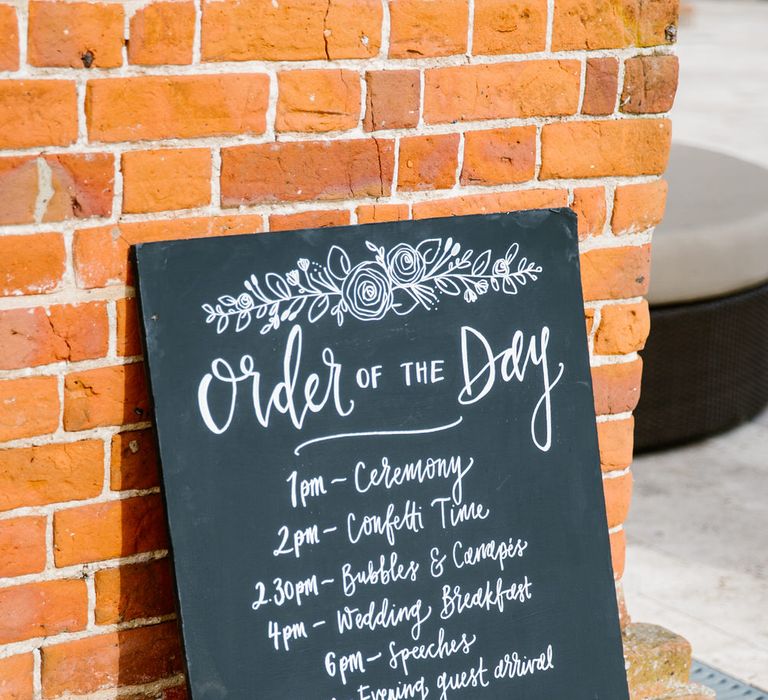 Order OF THE Day
1pm - Ceremony
2pm - Confetti Time
2.30pm - Bubbles & Canapés
4pm - Wedding Breakfast
6pm - Speeches
Evening guest arrival